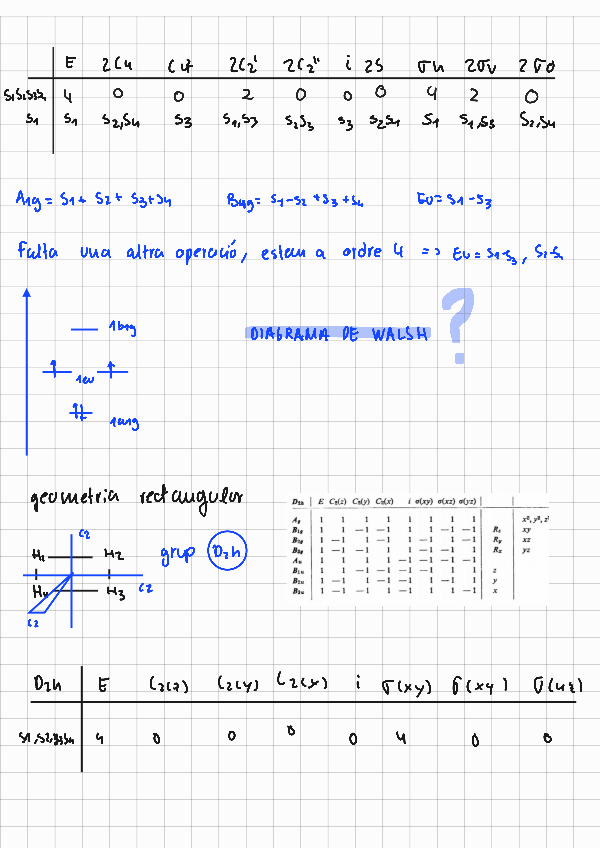 E 2C4 C4² 2C2' 2C2'' i 2S σh 2σv 2σd
S1S2S3S4 4 0 0 2 0 0 0 4 2 0
S1 S1 S2,S4 S3 S1,S3 S2S3 S3 S2S4 S1 S1,S3 S2,S4
A1g = S1 + S2 + S3+S4 B1g = S1-S2 +S3+S4 Eu = S1-S3
Falta una altra operació, estem a ordre 4 => Eu = S1-S3, S2-S4
1b1g
DIAGRAMA DE WALSH ?
1eu
1a1g
geometria rectangular
grup D2h
C2
H1 H2
C2
H4 H3
C2
D2h E C2(z) C2(y) C2(x) i σ(xy) σ(xz) σ(yz)
Ag 1 1 1 1 1 1 1 1 x², y², z²
B1g 1 1 -1 -1 1 1 -1 -1 Rz xy
B2g 1 -1 1 -1 1 -1 1 -1 Ry xz
B3g 1 -1 -1 1 1 -1 -1 1 Rx yz
Au 1 1 1 1 -1 -1 -1 -1
B1u 1 1 -1 -1 -1 -1 1 1 z
B2u 1 -1 1 -1 -1 1 -1 1 y
B3u 1 -1 -1 1 -1 1 1 -1 x
D2h E C2(z) C2(y) C2(x) i σ(xy) σ(xy) σ(yz)
S1,S2,S3,S4 4 0 0 0 0 4 0 0